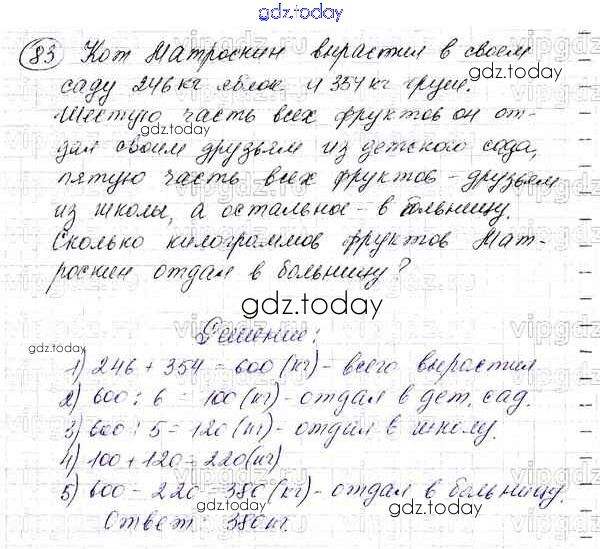 gdz.today
83 Кот Матроскин вырастил в своем
саду 246 кг яблок и 354 кг груш.
Шестую часть всех фруктов он от-
дал своим друзьям из детского сада,
пятую часть всех фруктов - друзьям
из школы, а остальное - в больницу.
Сколько килограммов фруктов Мат-
роскин отдал в больницу?
gdz.today
Решение:
1) 246 + 354 = 600 (кг) - всего вырастил
2) 600 : 6 = 100 (кг) - отдал в дет. сад.
3) 600 : 5 = 120 (кг) - отдал в школу.
4) 100 + 120 = 220 (кг)
5) 600 - 220 = 380 (кг) - отдал в больницу.
Ответ: 380 кг.
gdz.today